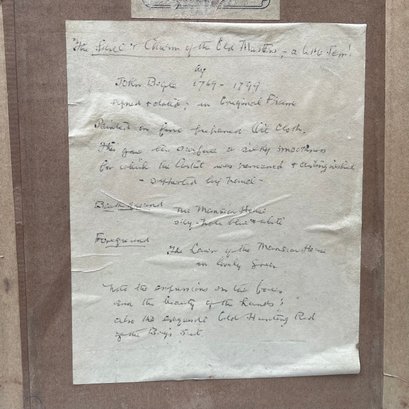 "The Skill & Charm of the Old Masters, - a little Gem!
by
John Boyle 1769 - 1799
signed & dated; in Original Frame
Painted on fine prepared Oil Cloth.
for which the Artist was renowned & distinguished
Background The Mansion House
sky - pale blue & white
Foreground The Lawn of the Mansion House
in lovely green
Note the expression on the faces
and the beauty of the Hands!
also the exquisite Old Hunting Red
of the Boy's Suit